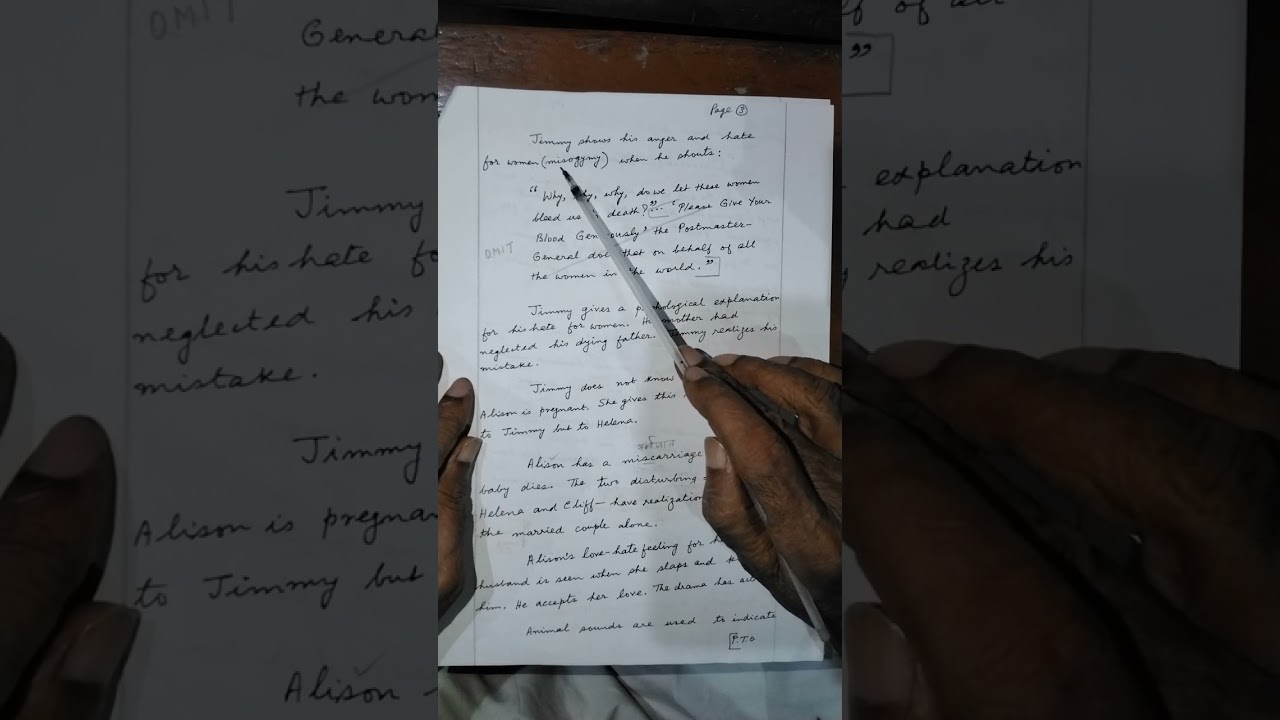 Page 3
Jimmy shows his anger and hate
for women (misogymy) when he shouts:
" Why, why, why, do we let these women
bleed us death?"... 'Please Give Your
Blood Generously' the Postmaster-
OMIT
General does that on behalf of all
the women in the world."
Jimmy gives a explanation
for his hate for women. mother had
neglected his dying father. Jimmy realizes his
mistake.
Jimmy does not know
Alison is pregnant. She gives this
to Jimmy but to Helena.
गर्भपात
Alison has a miscarriage
baby dies. The two disturbing
Helena and Cliff- have realization
the married couple alone.
Alison's love-hate feeling for
husband is seen when she slaps and
him. He accepts her love. The drama has
Animal sounds are used to indicate
P.T.O